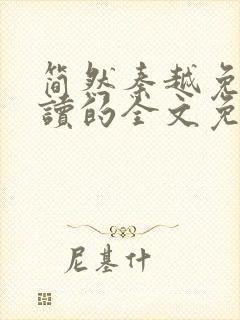 简然秦越免
读的全文免
尼基什